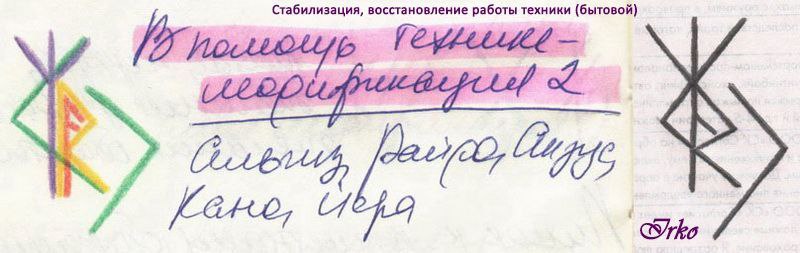 Стабилизация, восстановление работы техники (бытовой)
В помощь технике-
модификация 2
Альгиз, Райдо, Ансуз,
Кано, Йера
Irko